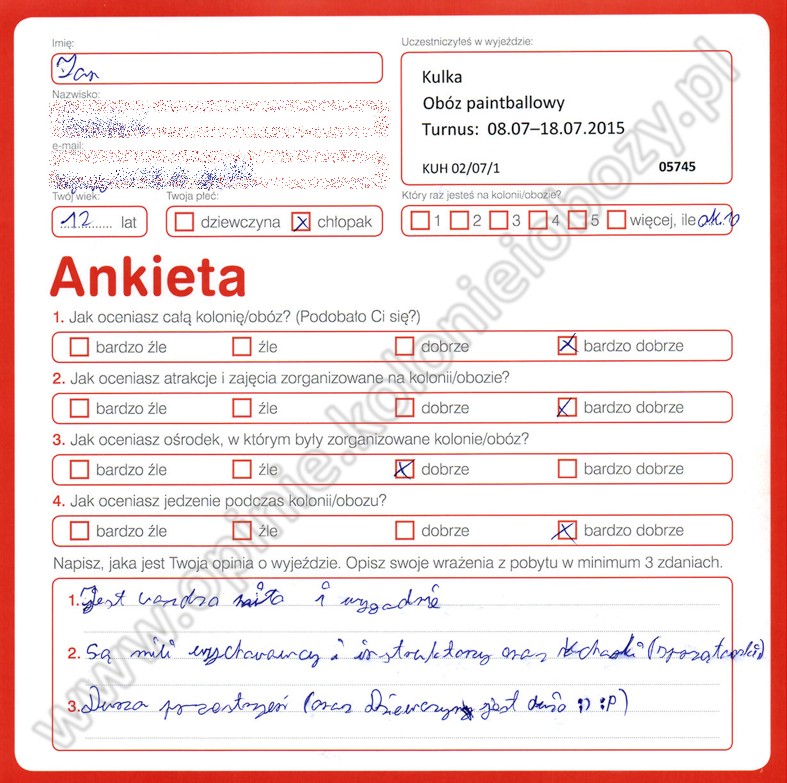 Imię:
Jan
Uczestniczyłeś w wyjeździe:
Kulka
Obóz paintballowy
Turnus: 08.07–18.07.2015
KUH 02/07/1 05745
Nazwisko:
e-mail:
Twój wiek:
12 lat
Twoja płeć:
dziewczyna chłopak
Który raz jesteś na kolonii/obozie?
1 2 3 4 5 więcej, ile ok. 10
Ankieta
1. Jak oceniasz całą kolonię/obóz? (Podobało Ci się?)
bardzo źle źle dobrze bardzo dobrze
2. Jak oceniasz atrakcje i zajęcia zorganizowane na kolonii/obozie?
bardzo źle źle dobrze bardzo dobrze
3. Jak oceniasz ośrodek, w którym były zorganizowane kolonie/obóz?
bardzo źle źle dobrze bardzo dobrze
4. Jak oceniasz jedzenie podczas kolonii/obozu?
bardzo źle źle dobrze bardzo dobrze
Napisz, jaka jest Twoja opinia o wyjeździe. Opisz swoje wrażenia z pobytu w minimum 3 zdaniach.
1. Jest bardzo i wygodnie
2. Są mili wychowawcy i instruktorzy oraz
3. Duża przestrzeń (oraz Dziewczyn jest dużo ;) :P)
www.opinie.kolonieiobozy.pl